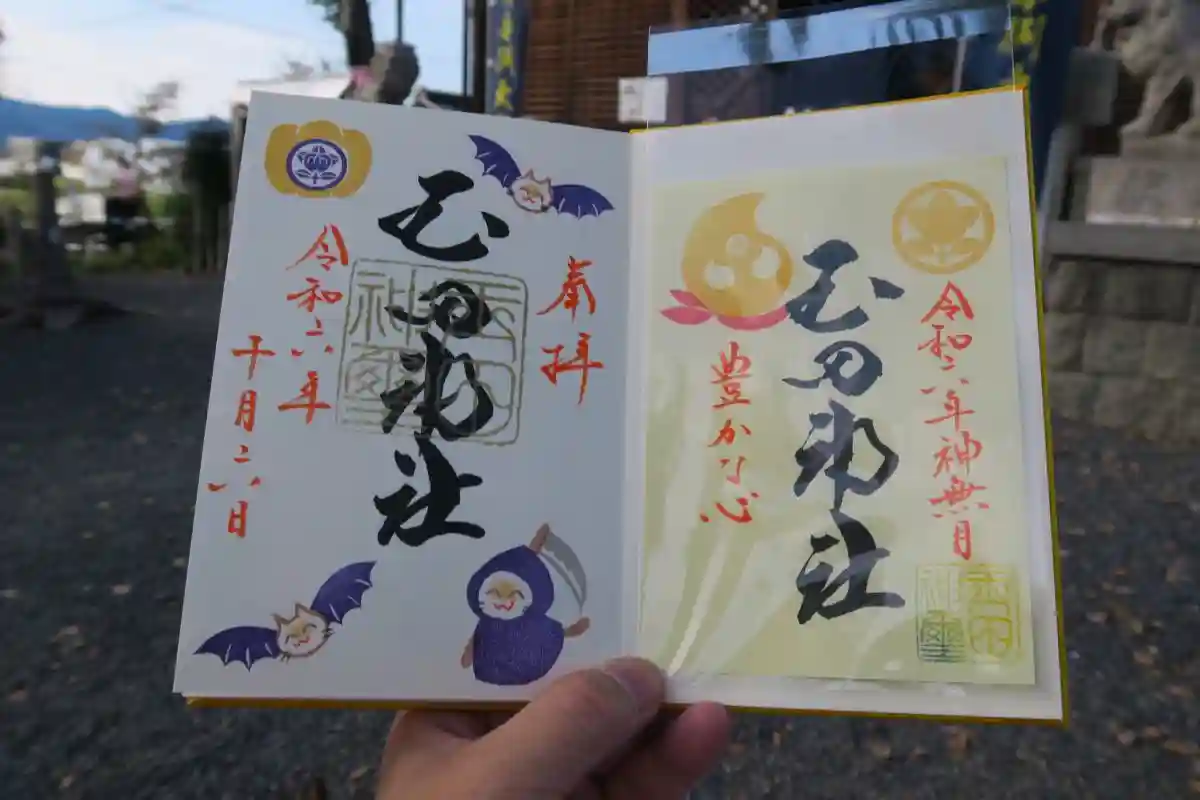 令和六年神無月
玉田神社
豊かな心
玉田
神璽
奉拝
玉田神社
玉田
神璽
令和六年
十月六日